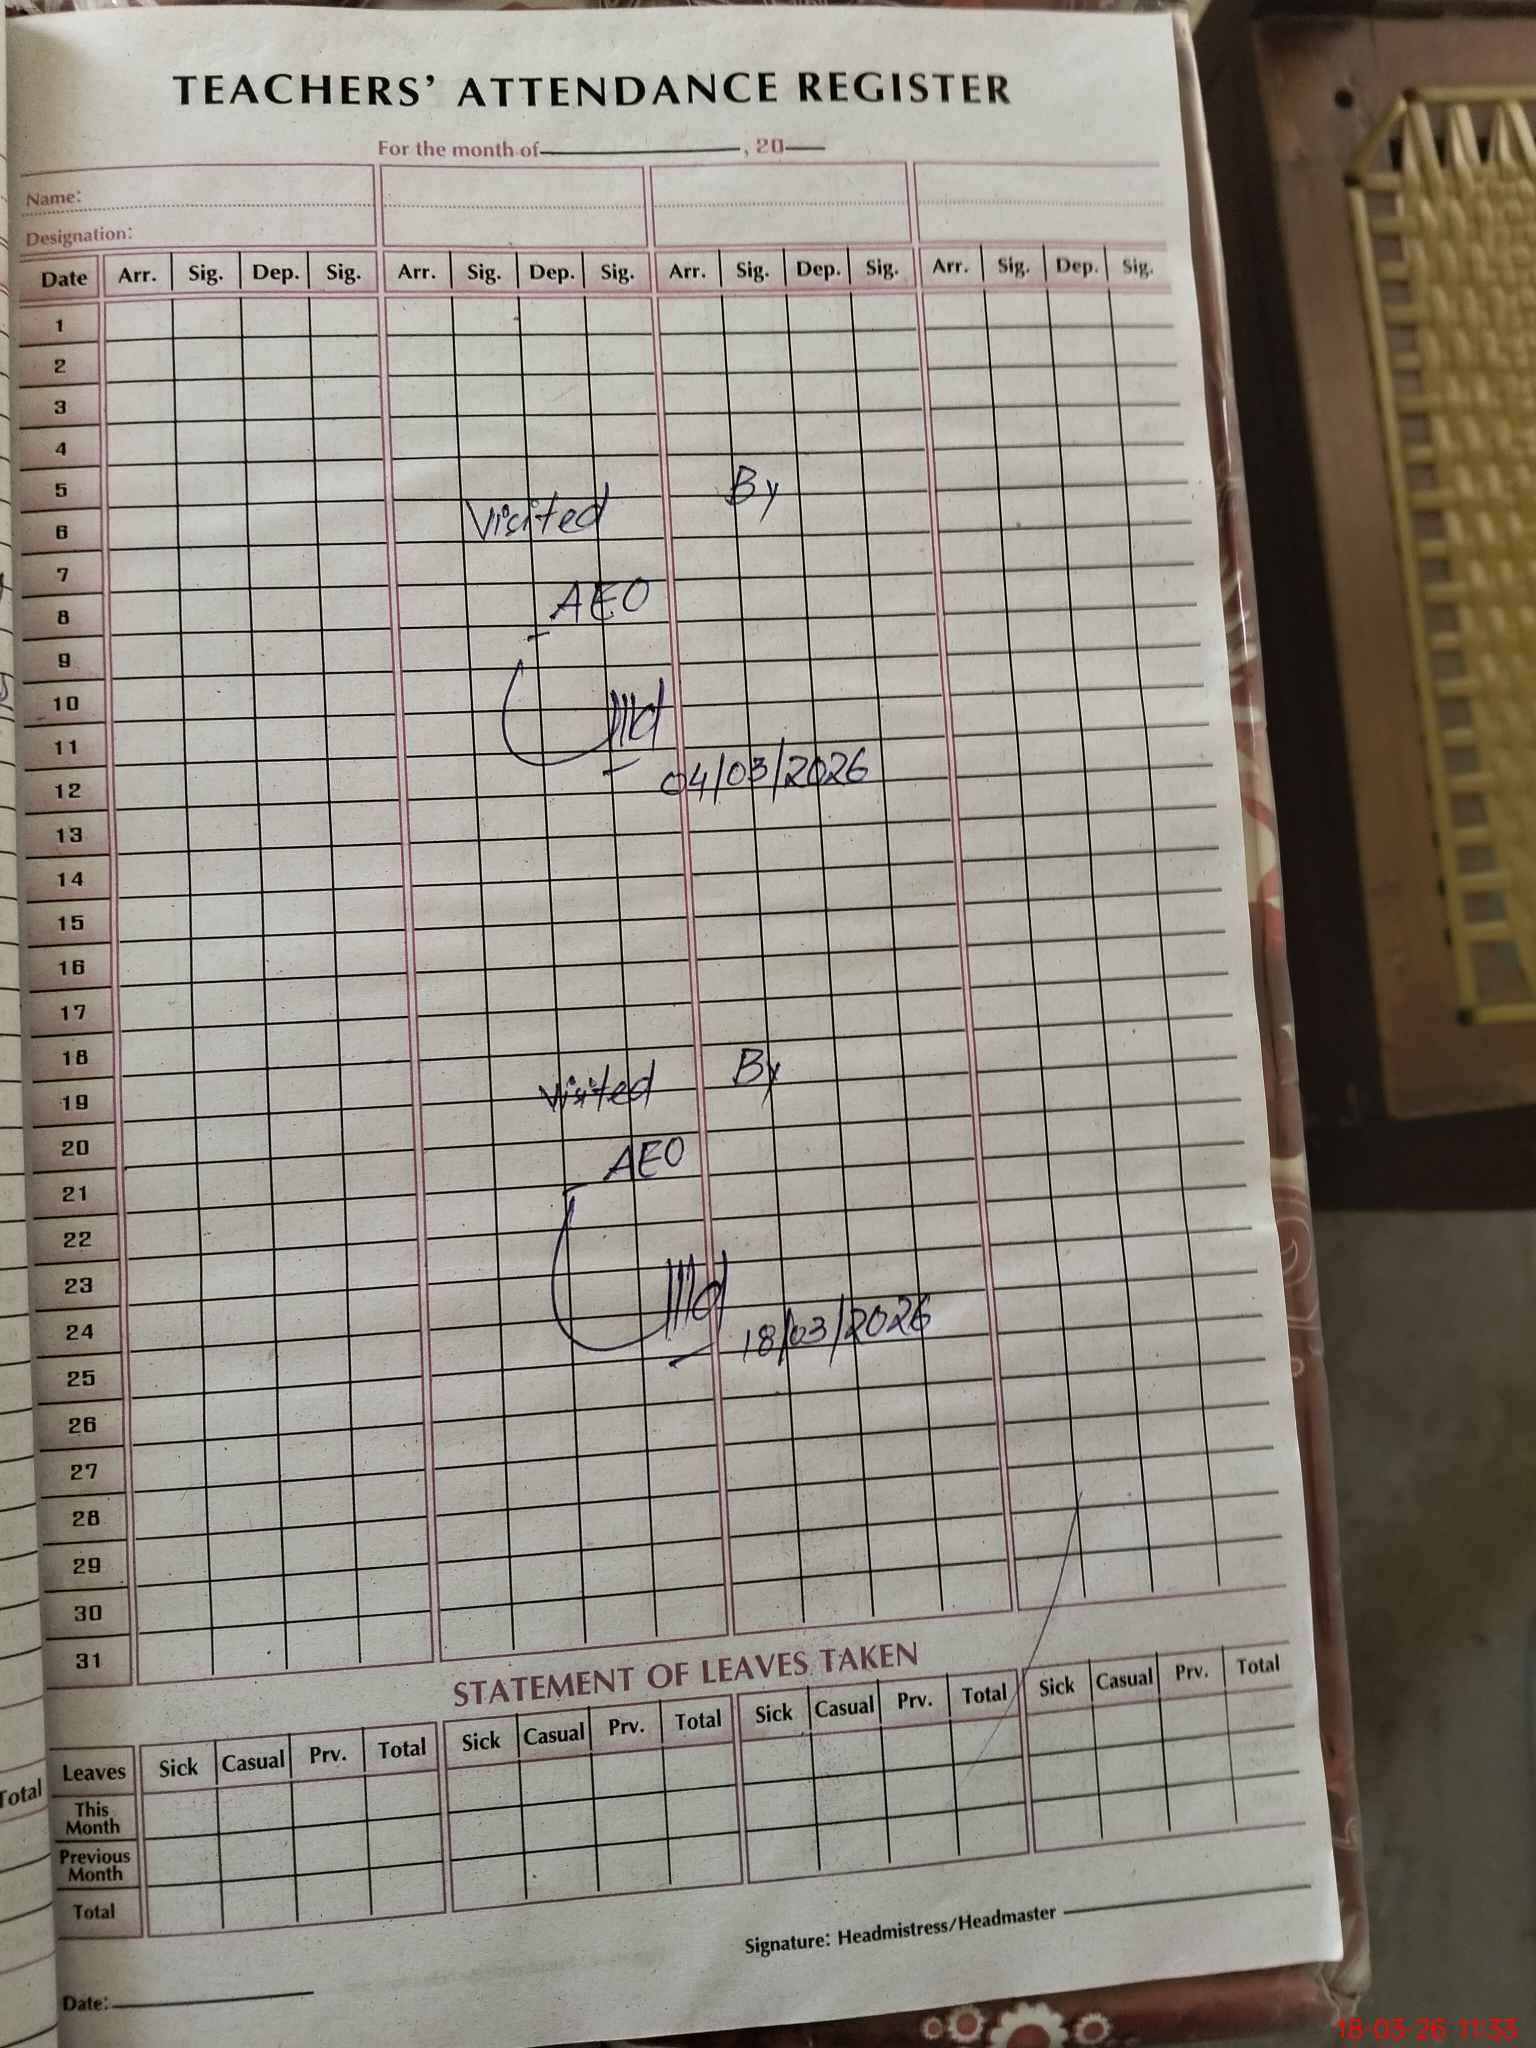 TEACHERS' ATTENDANCE REGISTER
For the month of , 20
Name:
Designation:
Date Arr. Sig. Dep. Sig. Arr. Sig. Dep. Sig. Arr. Sig. Dep. Sig. Arr. Sig. Dep. Sig.
1
2
3
4
5
6
7
8
9
10
11
12
13
14
15
16
17
18
19
20
21
22
23
24
25
26
27
28
29
30
31
Visited By
AEO
04/03/2026
Visited By
AEO
18/03/2026
STATEMENT OF LEAVES TAKEN
Leaves Sick Casual Prv. Total Sick Casual Prv. Total Sick Casual Prv. Total Sick Casual Prv. Total
This Month
Previous Month
Total
Total
Signature: Headmistress/Headmaster
Date:
18-03-26 11:33